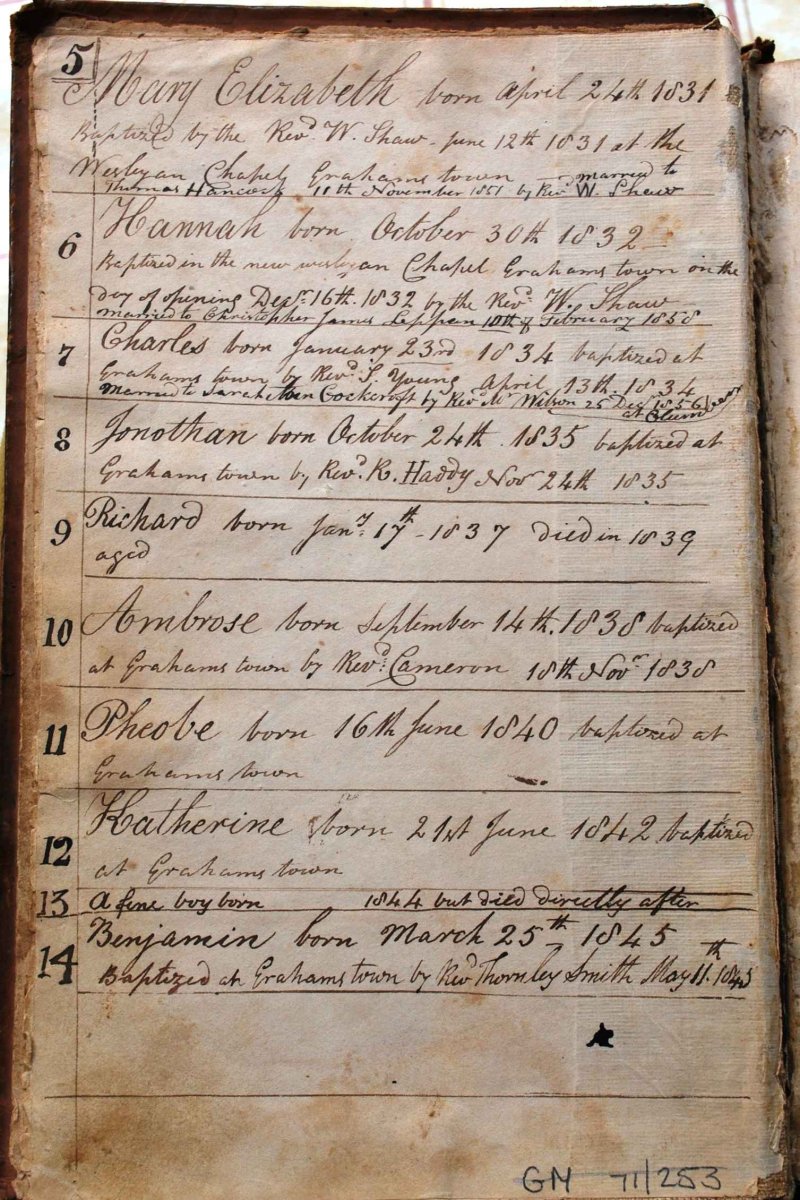 5 Mary Elizabeth born April 24th 1831
Baptized by the Revd. W. Shaw - June 12th 1831 at the
Wesleyan Chapel Grahams town - married to
Thomas Hancock 11th November 1851 by Rev W. Shaw
6 Hannah born October 30th 1832
Baptized in the new wesleyan Chapel Grahams town on the
day of opening Decr. 16th. 1832 by the Revd. W. Shaw
married to Christopher James Leppan 10th of February 1858
7 Charles born January 23rd 1834 baptized at
Grahams town by Revd. S. Young April 13th. 1834
Married to Sarah Ann Cockcroft by Revd Mr Wilson 25 Decr 1856
at
8 Jonothan born October 24th. 1835 baptized at
Grahams town by Revd. R. Haddy Novr 24th 1835
9 Richard born Jany. 17th - 1837 died in 1839
aged
10 Ambrose born September 14th. 1838 baptized
at Grahams town by Revd. Cameron 18th Novr 1838
11 Pheobe born 16th June 1840 baptized at
Grahams town
12 Katherine born 21st June 1842 baptized
at Grahams town
13 A fine boy born 1844 but died directly after
14 Benjamin born March 25th 1845
Baptized at Grahams town by Revd Thornley Smith May 11th. 1845
GM 71/253